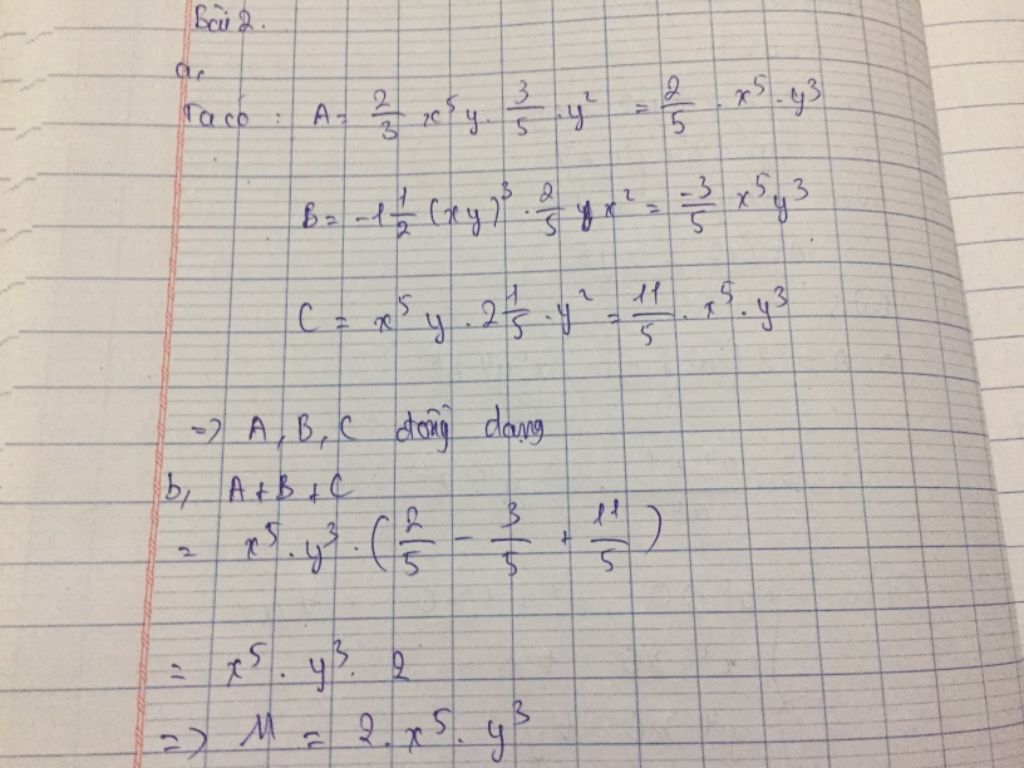 Bài 2.
a,
Ta có : A = 2/3 x⁵ y . 3/5 . y² = 2/5 . x⁵ . y³
B = -1 1/2 (xy)³ . 2/5 y x² = -3/5 x⁵ y³
C = x⁵ y . 2 1/5 . y² = 11/5 . x⁵ . y³
=> A, B, C đồng dạng
b, A + B + C
= x⁵ . y³ . (2/5 - 3/5 + 11/5)
= x⁵ . y³ . 2
=> M = 2 . x⁵ . y³